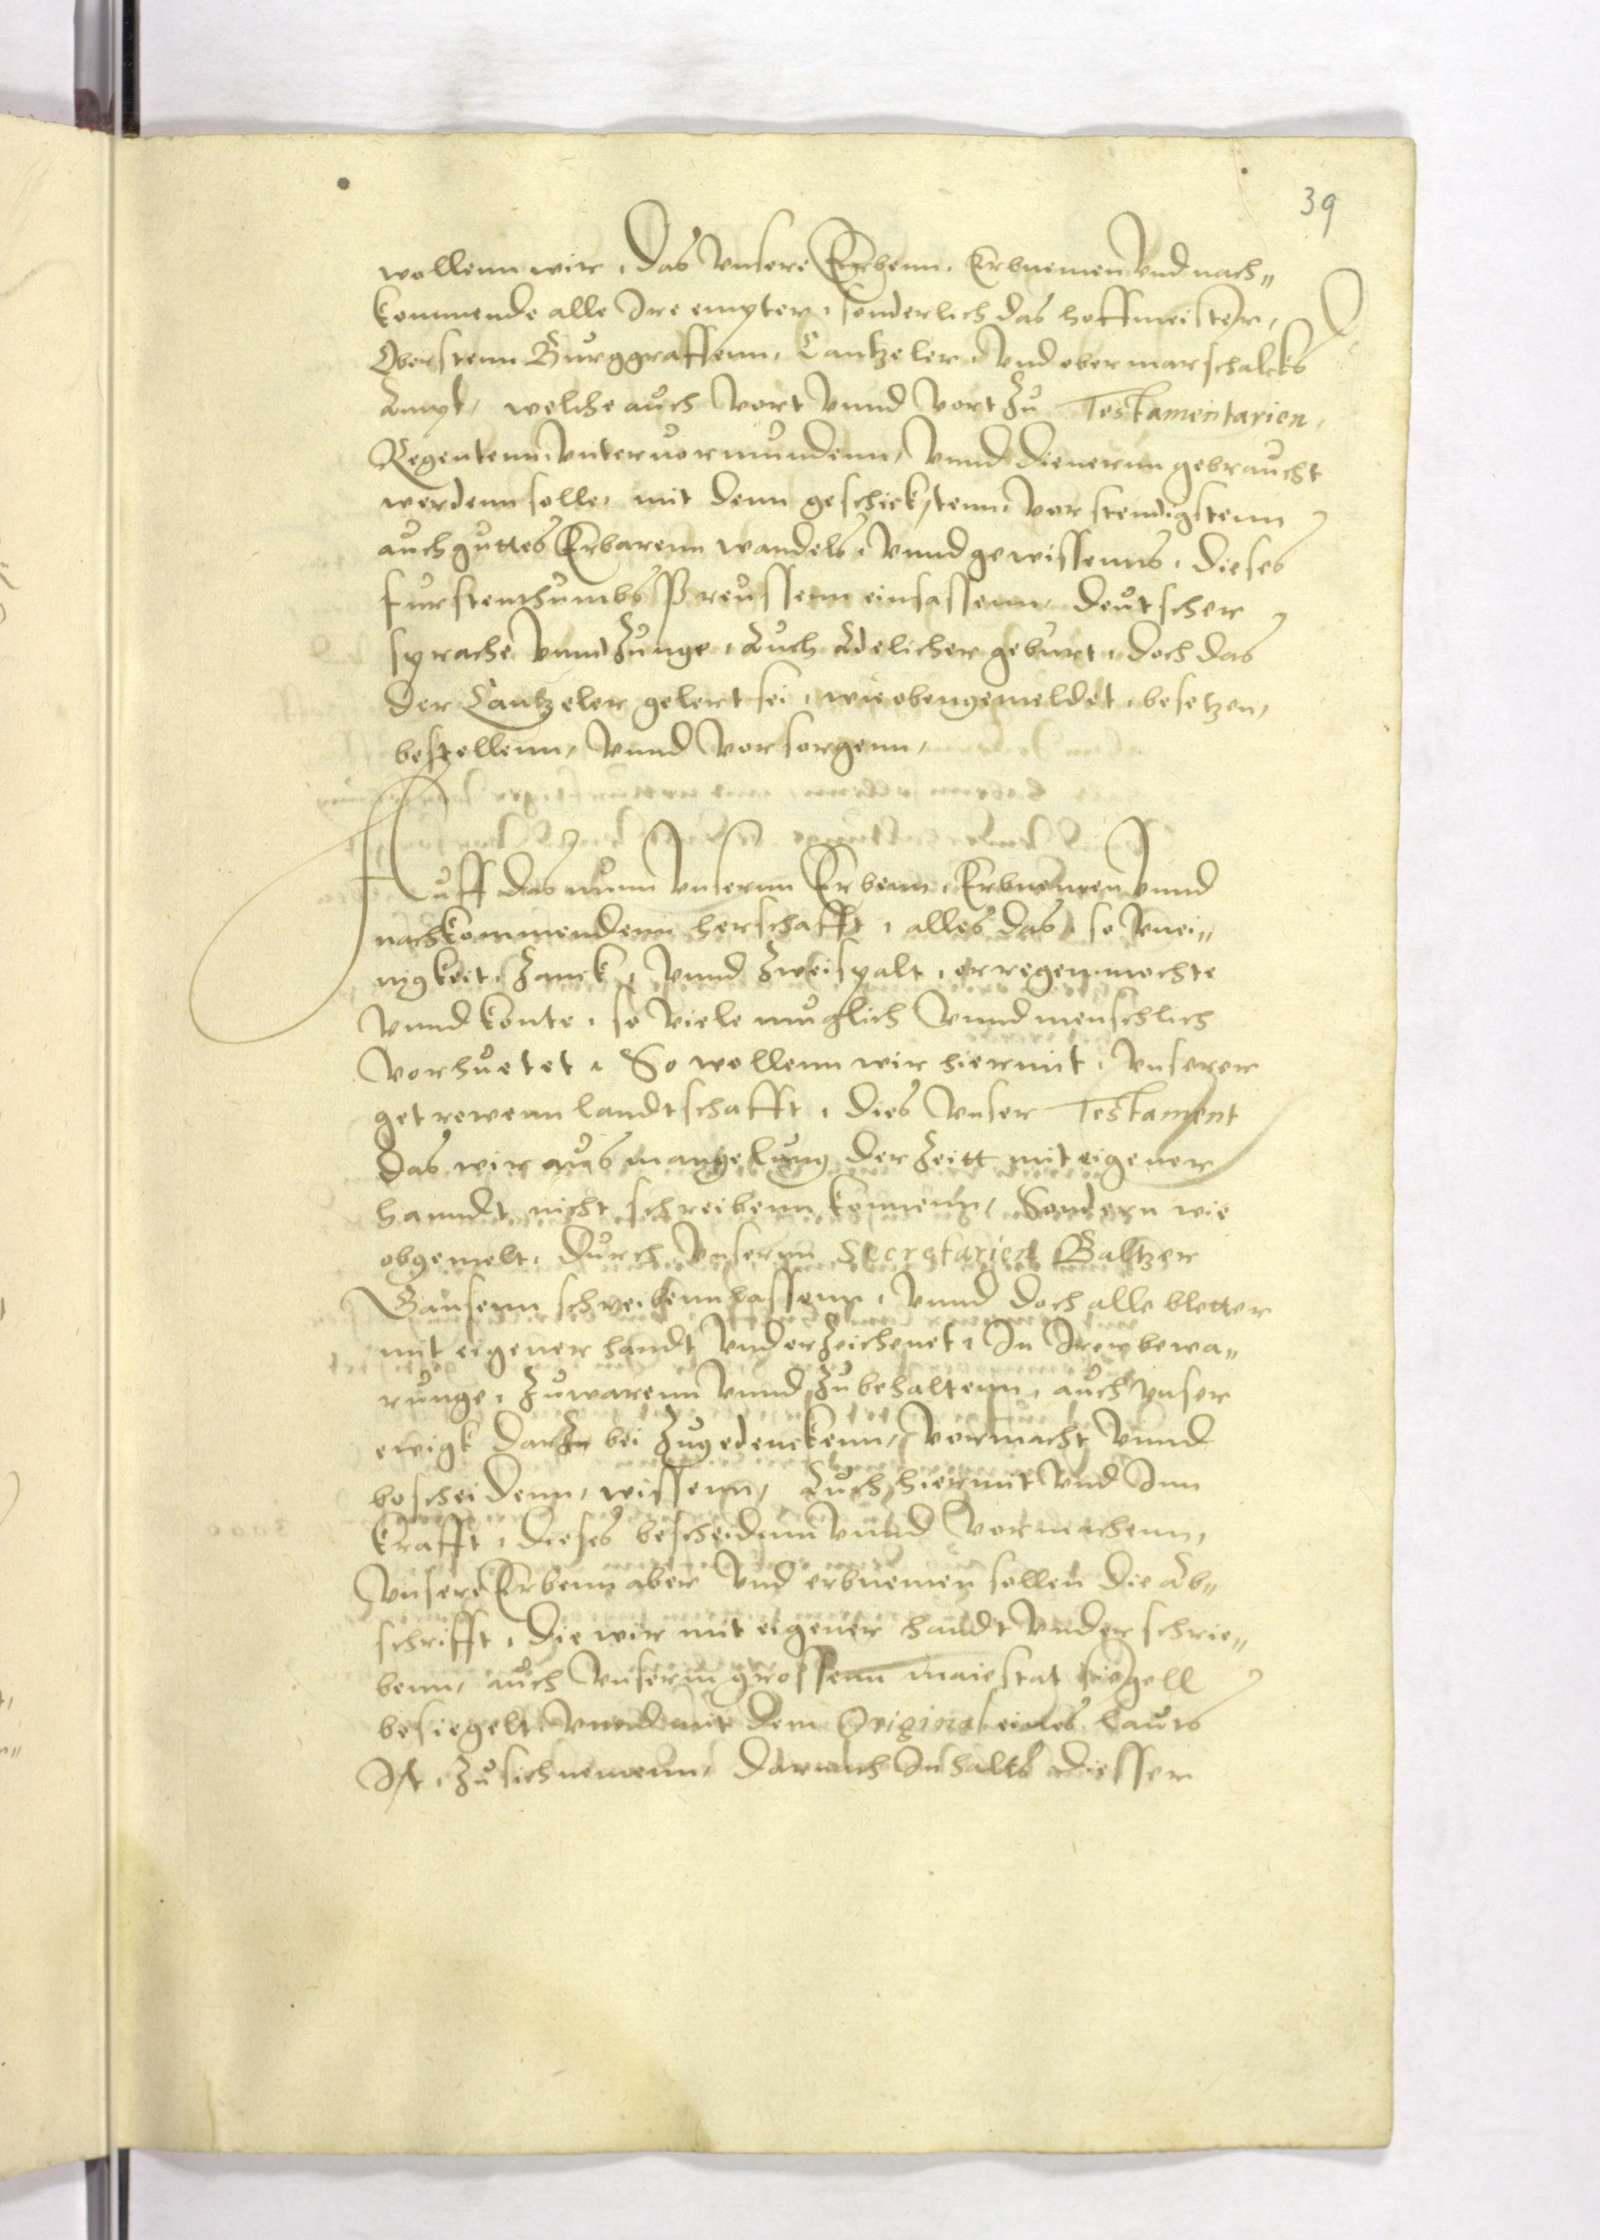 39
wollenn wir, Das vnsere Erbenn, Erbnemen vnd nach„
kommende alle Ire empter, sonderlich das hoffmeister,
Oberstenn Burggraffenn, Cantzeler, vnd obermarschalcks
Ampt, welche auch vort vnnd vort zu Testamentarien,
Regentenn, vnteruormundenn, vnnd Dienernn gebraucht
werdenn solle, mit denn geschicktenn, vorstendigstenn
auch guttes Erbarenn wandels, vnnd gewissenns, dieses
furstenthumbs Preussenn einsassenn, deutscher
sprache vnnd Zunge, Auch Adelicher geburt, doch das
der Cantzeler gelert sei, wie obengemeldet, besetzen,
bestellenn, vnnd vorsorgenn,
Auff das nunn vnsernn Erbenn, Erbnemen vnnd
nachkommendenn herschafft, alles das, so vnei„
nigkeit, Zanck, vnnd Zweispalt, erregen mochte
vnnd konte, so viele muglich vnnd menschlich
vorhuetet, So wollenn wir hiermit, vnserer
getrewenn landtschafft, dies vnser Testament
das wir aus mangelung der Zeitt mit eigener
hanndt nicht schreibenn konnenn, Sondern wie
obgemelt, durch vnsernn Secretarien Baltzer
Gansenn schreibenn lassenn, vnnd doch alle bletter
mit eigener handt vnderzeichenet, In Irer bewa„
runge, Zuwarenn vnnd Zubehaltenn, auch vnser
ewigk dar bei Zugedenckenn, vermacht vnnd
bescheidenn, wissenn, Auch hiermit vnd Inn
krafft, dieses bescheidenn vnnd vormachenn,
Vnsere Erbenn aber vnd erbnemen sollen die Ab„
schrifft, die wir mit eigener handt vnderschrie„
benn, auch vnserm grossenn maiestat siegell
besiegelt, vnnd mit dem Original eines lauts
Ist, Zu sich nemenn, darnach Inhalts diesser